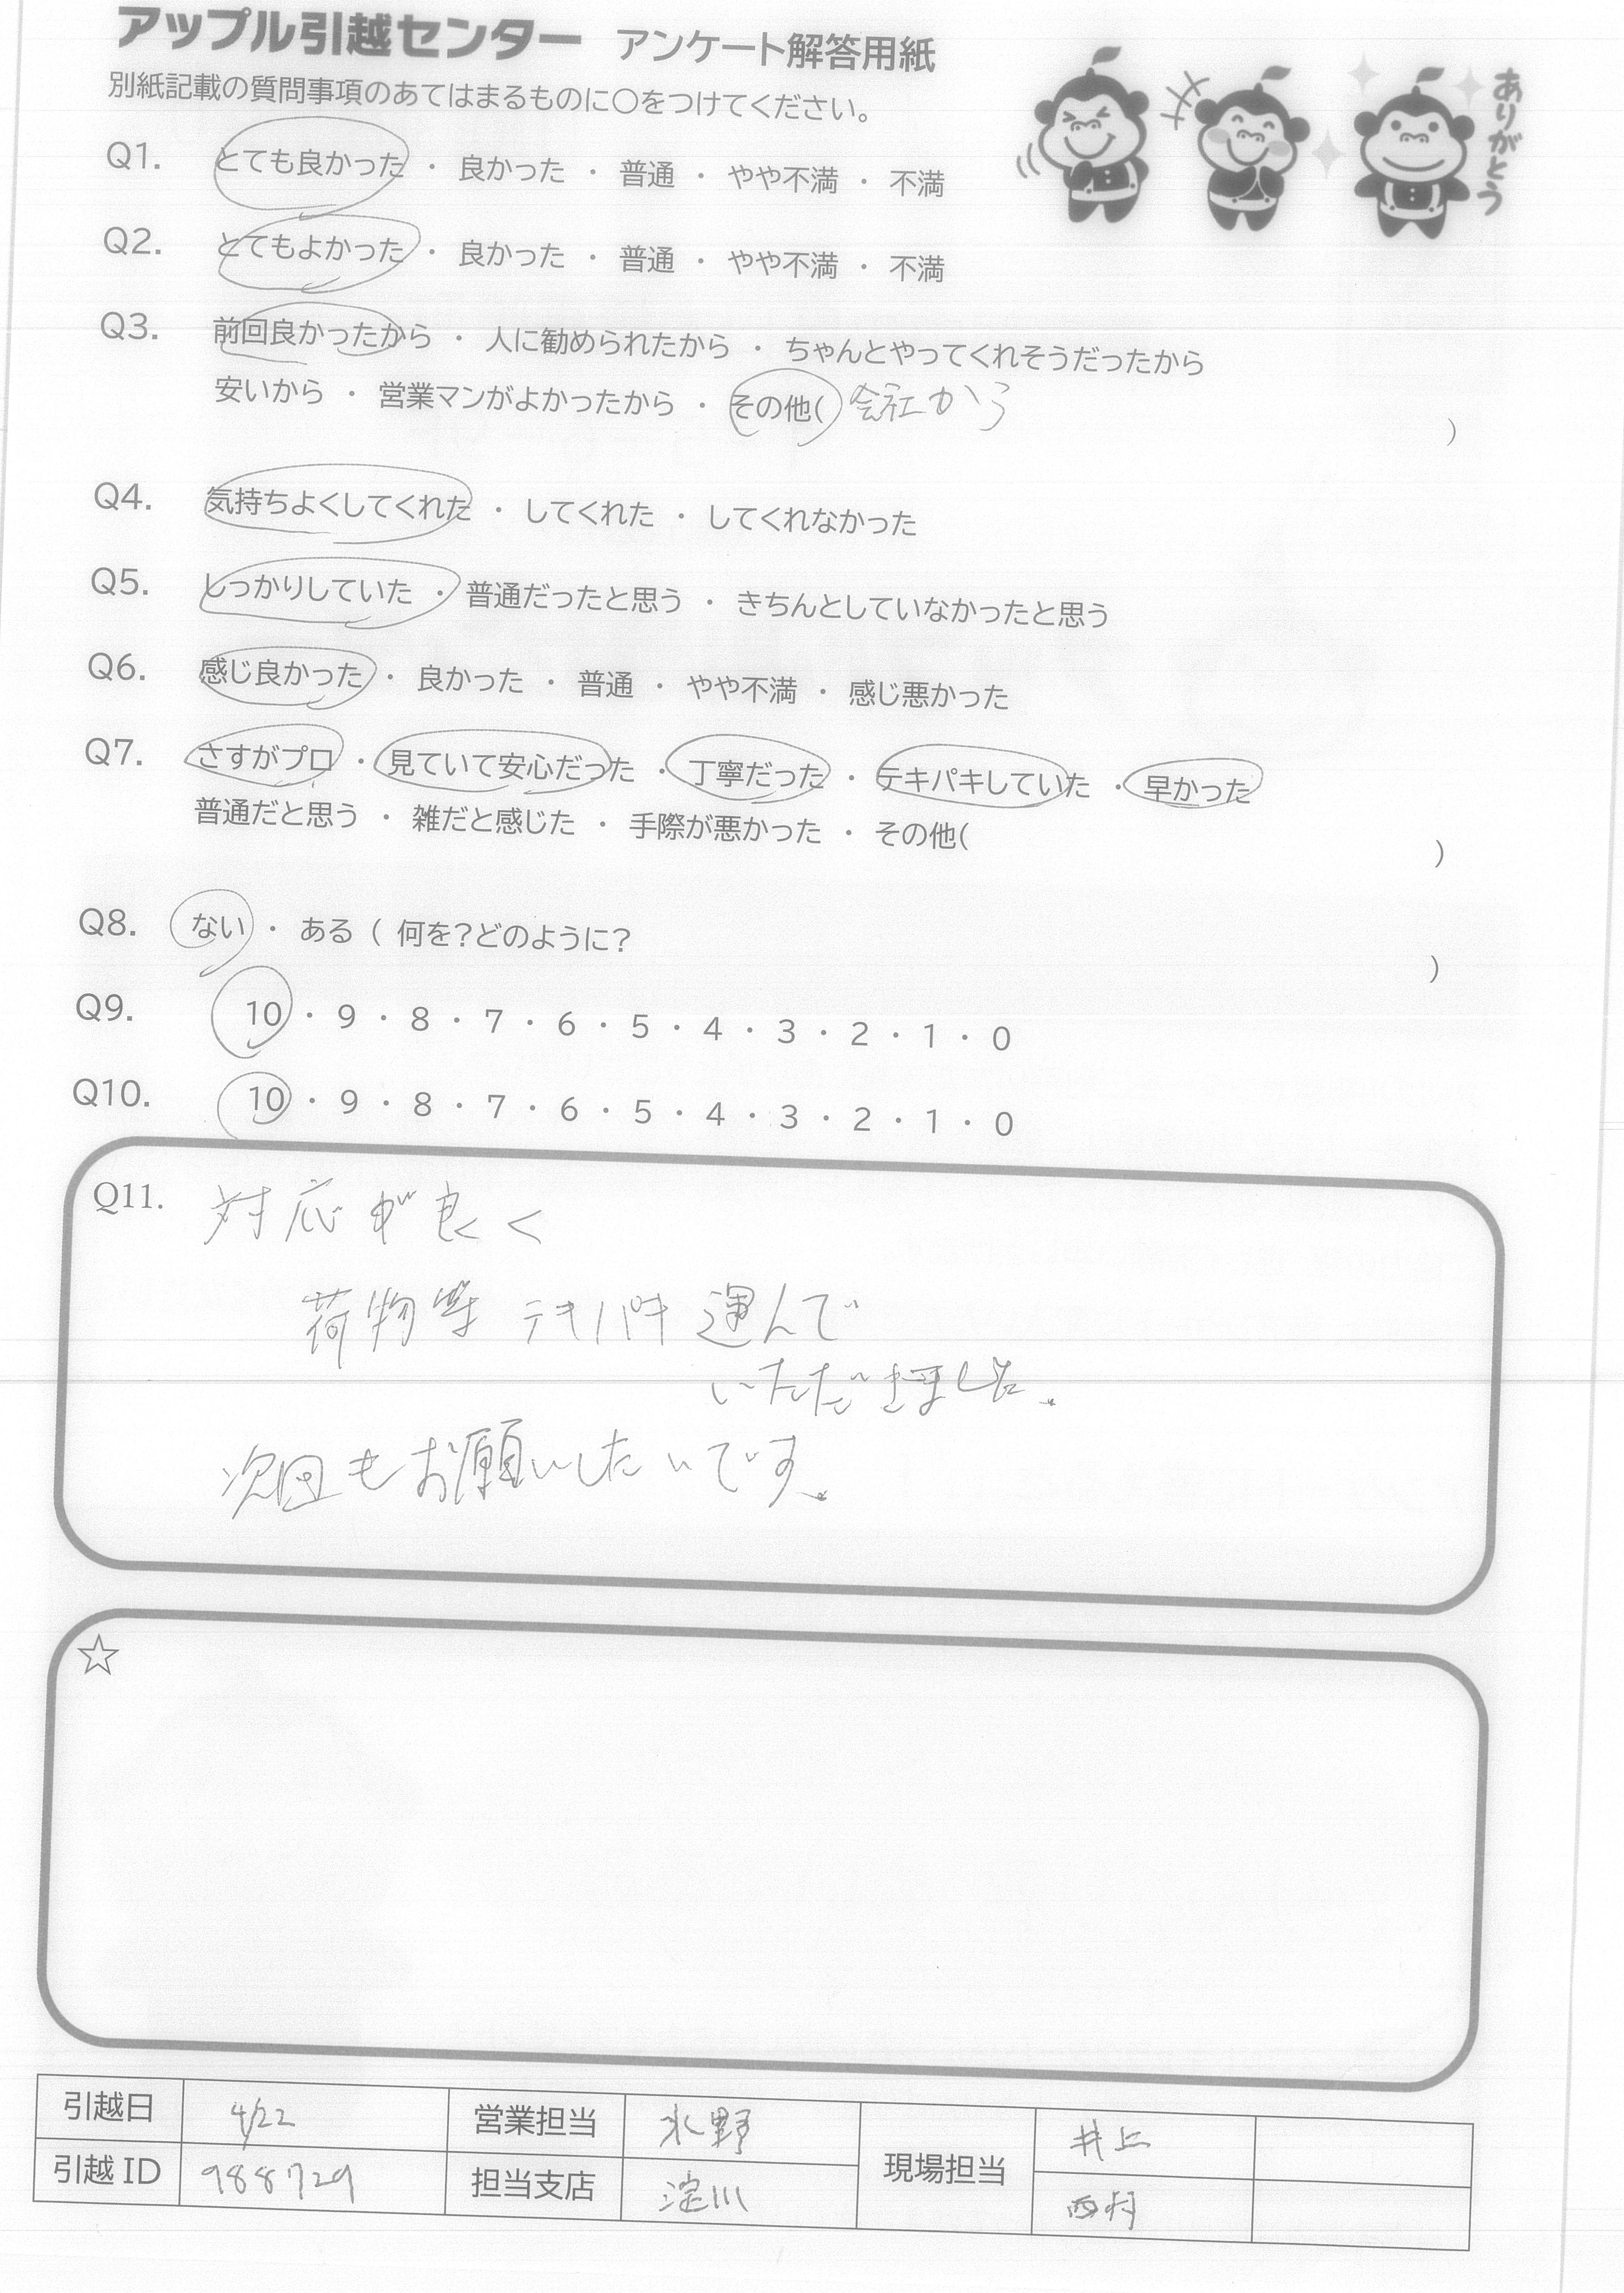 アップル引越センター アンケート解答用紙
別紙記載の質問事項のあてはまるものに○をつけてください。
ありがとう
Q1. とても良かった ・ 良かった ・ 普通 ・ やや不満 ・ 不満
Q2. とてもよかった ・ 良かった ・ 普通 ・ やや不満 ・ 不満
Q3. 前回良かったから ・ 人に勧められたから ・ ちゃんとやってくれそうだったから
安いから ・ 営業マンがよかったから ・ その他( 会社から )
Q4. 気持ちよくしてくれた ・ してくれた ・ してくれなかった
Q5. しっかりしていた ・ 普通だったと思う ・ きちんとしていなかったと思う
Q6. 感じ良かった ・ 良かった ・ 普通 ・ やや不満 ・ 感じ悪かった
Q7. さすがプロ ・ 見ていて安心だった ・ 丁寧だった ・ テキパキしていた ・ 早かった
普通だと思う ・ 雑だと感じた ・ 手際が悪かった ・ その他( )
Q8. ない ・ ある ( 何を?どのように? )
Q9. 10 ・ 9 ・ 8 ・ 7 ・ 6 ・ 5 ・ 4 ・ 3 ・ 2 ・ 1 ・ 0
Q10. 10 ・ 9 ・ 8 ・ 7 ・ 6 ・ 5 ・ 4 ・ 3 ・ 2 ・ 1 ・ 0
Q11. 対応が良く
荷物等 テキパキ 運んで
いただきました。
次回もお願いしたいです。
☆
引越日 4/22 営業担当 水野 現場担当 井上
引越ID 988729 担当支店 淀川 西村